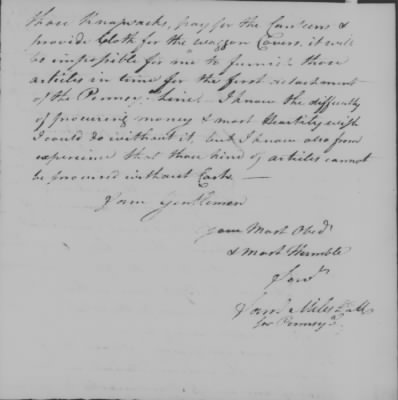 those Knapsacks, pay for the Canteens &
provide Cloth for the Waggon Covers, it will
be impossible for me to furnish those
articles in time for the first detachment
of the Pennsya. Line — I know the difficulty
of procuring money & most Heartily wish
I could do without it, but I know also from
experience that those kind of articles cannot
be procured without Cash —
I am Gentlemen
your Most Obedt
& most Humble
Servt
Saml Miles D.Q.M
for Pennsya